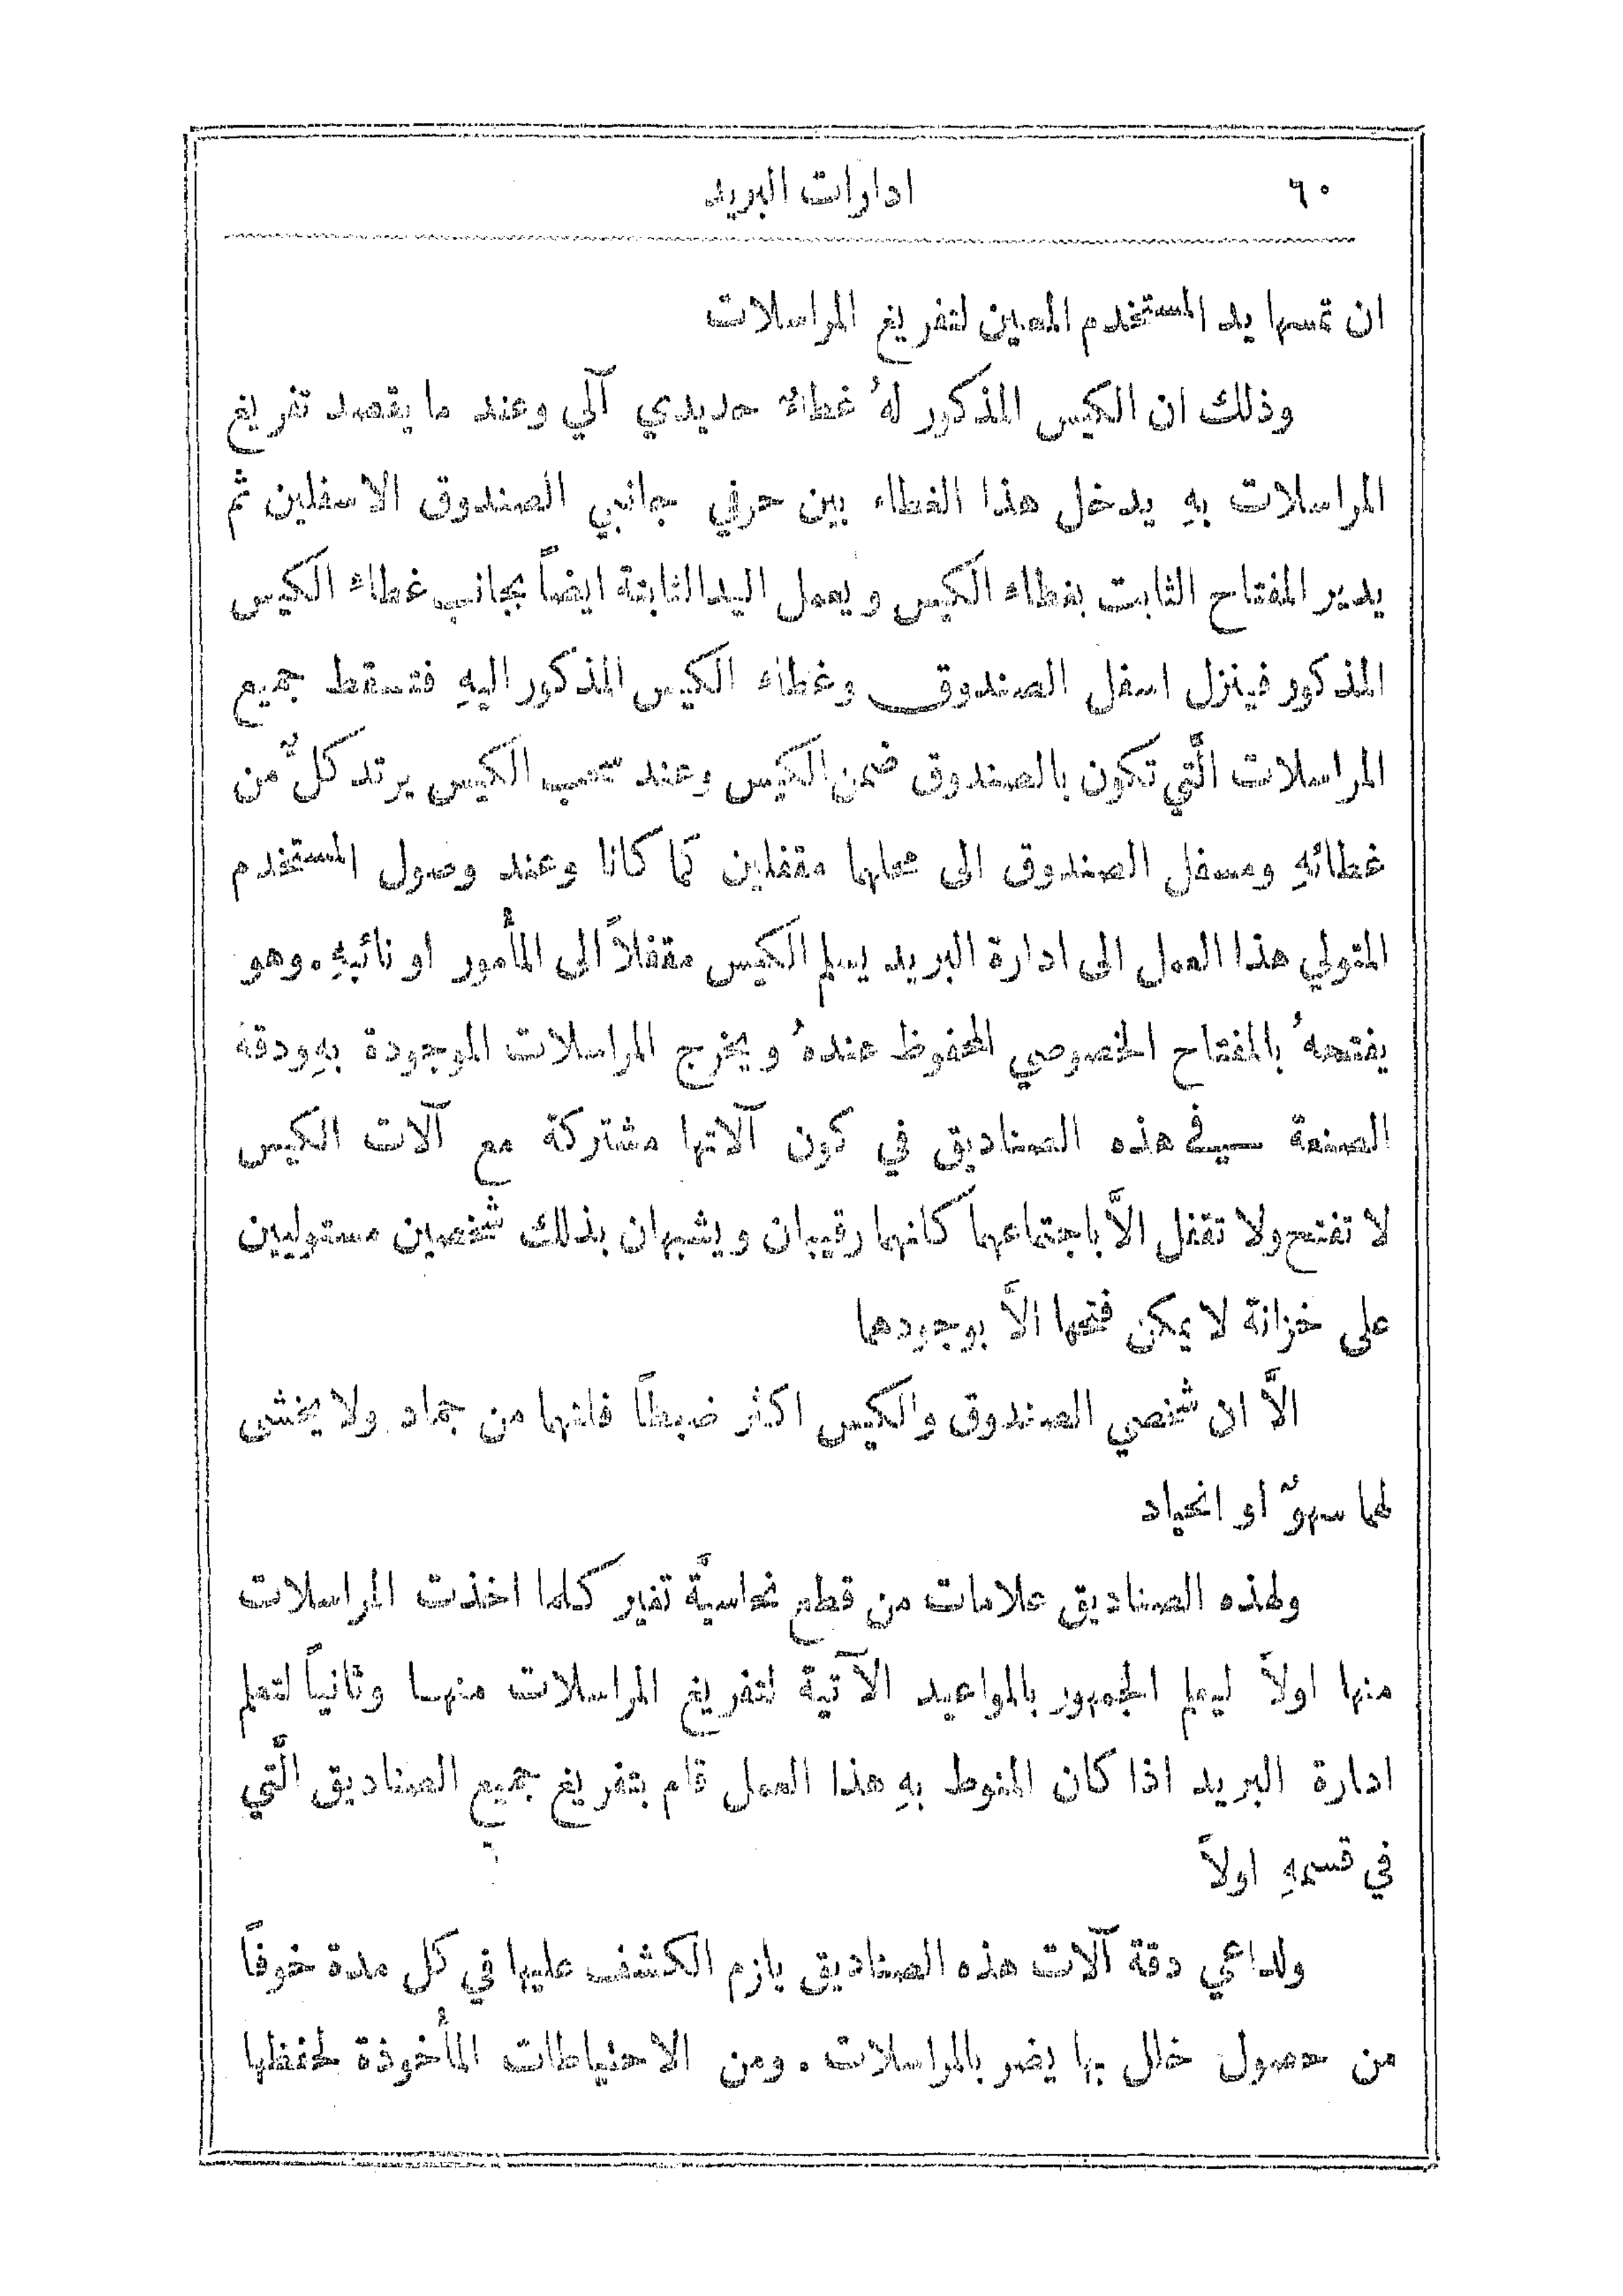 ٦٠
ادارات البريد
ان تمسها يد المستخدم المعين لتفريغ المراسلات
وذلك ان الكيس المذكور لهُ غطاءٌ حديدي آلي وعند ما يقصد تفريغ
المراسلات بهِ يدخل هذا الغطاء بين حرفي جانبي الصندوق الاسفلين ثم
يدير المفتاح الثابت بغطاء الكيس ويعمل اليد الثابتة ايضاً بجانب غطاء الكيس
المذكور فينزل اسفل الصندوق وغطاء الكيس المذكور اليهِ فتسقط جميع
المراسلات الَّتي تكون بالصندوق ضمن الكيس وعند سحب الكيس يرتد كلٌّ من
غطائهِ ومسفل الصندوق الى محلهما مقفلين كما كانا وعند وصول المستخدم
المتولي هذا العمل الى ادارة البريد يسلم الكيس مقفلاً الى المأمور او نائبهِ . وهو
يفتحهُ بالمفتاح الخصوصي المحفوظ عندهُ ويخرج المراسلات الموجودة بهِ ودقة
الصنعة في هذه الصناديق في كون آلاتها مشتركة مع آلات الكيس
لا تفتح ولا تقفل الاَّ باجتماعهما كانهما رقيبان ويشبهان بذلك شخصين مستوليين
على خزانة لا يمكن فتحها الاَّ بوجودهما
الاَّ ان شخصي الصندوق والكيس اكثر ضبطاً فانهما من جماد ولا يخشى
لهما سهوٌ او انحياد
ولهذه الصناديق علامات من قطع نحاسيَّة تغير كلما اخذت المراسلات
منها اولاً ليعلم الجمهور بالمواعيد الآتية لتفريغ المراسلات منها وثانياً لتعلم
ادارة البريد اذا كان المنوط بهِ هذا العمل قام بتفريغ جميع الصناديق الَّتي
في قسمهِ اولاً
ولداعي دقة آلات هذه الصناديق يلزم الكشف عليها في كل مدة خوفاً
من حصول خلل بها يضر بالمراسلات . ومن الاحتياطات المأخوذة لحفظها